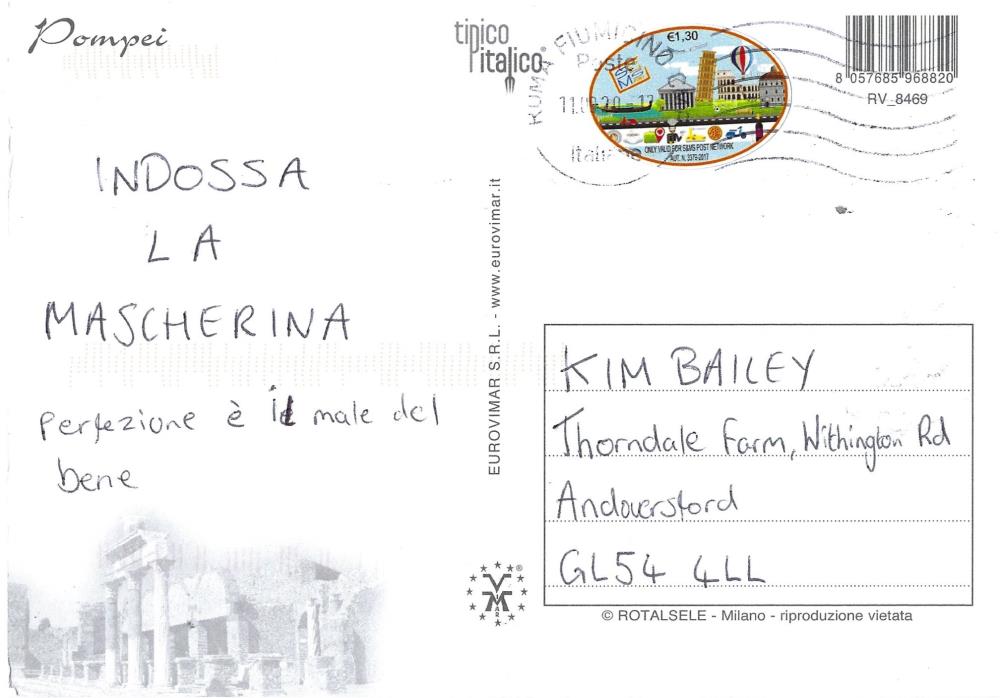 Pompei
tipico
italico®
€1,30
SMS
ONLY VALID FOR SMS POST NETWORK
AUT. N. 3378-2017
ROMA FIUMICINO
Poste
Italiane
8 057685 968820
RV 8469
INDOSSA
LA
MASCHERINA
perfezione è il male del
bene
EUROVIMAR S.R.L. - www.eurovimar.it
KIM BAILEY
Thorndale Farm, Withington Rd
Andoversford
GL54 4LL
VIMAR®
© ROTALSELE - Milano - riproduzione vietata